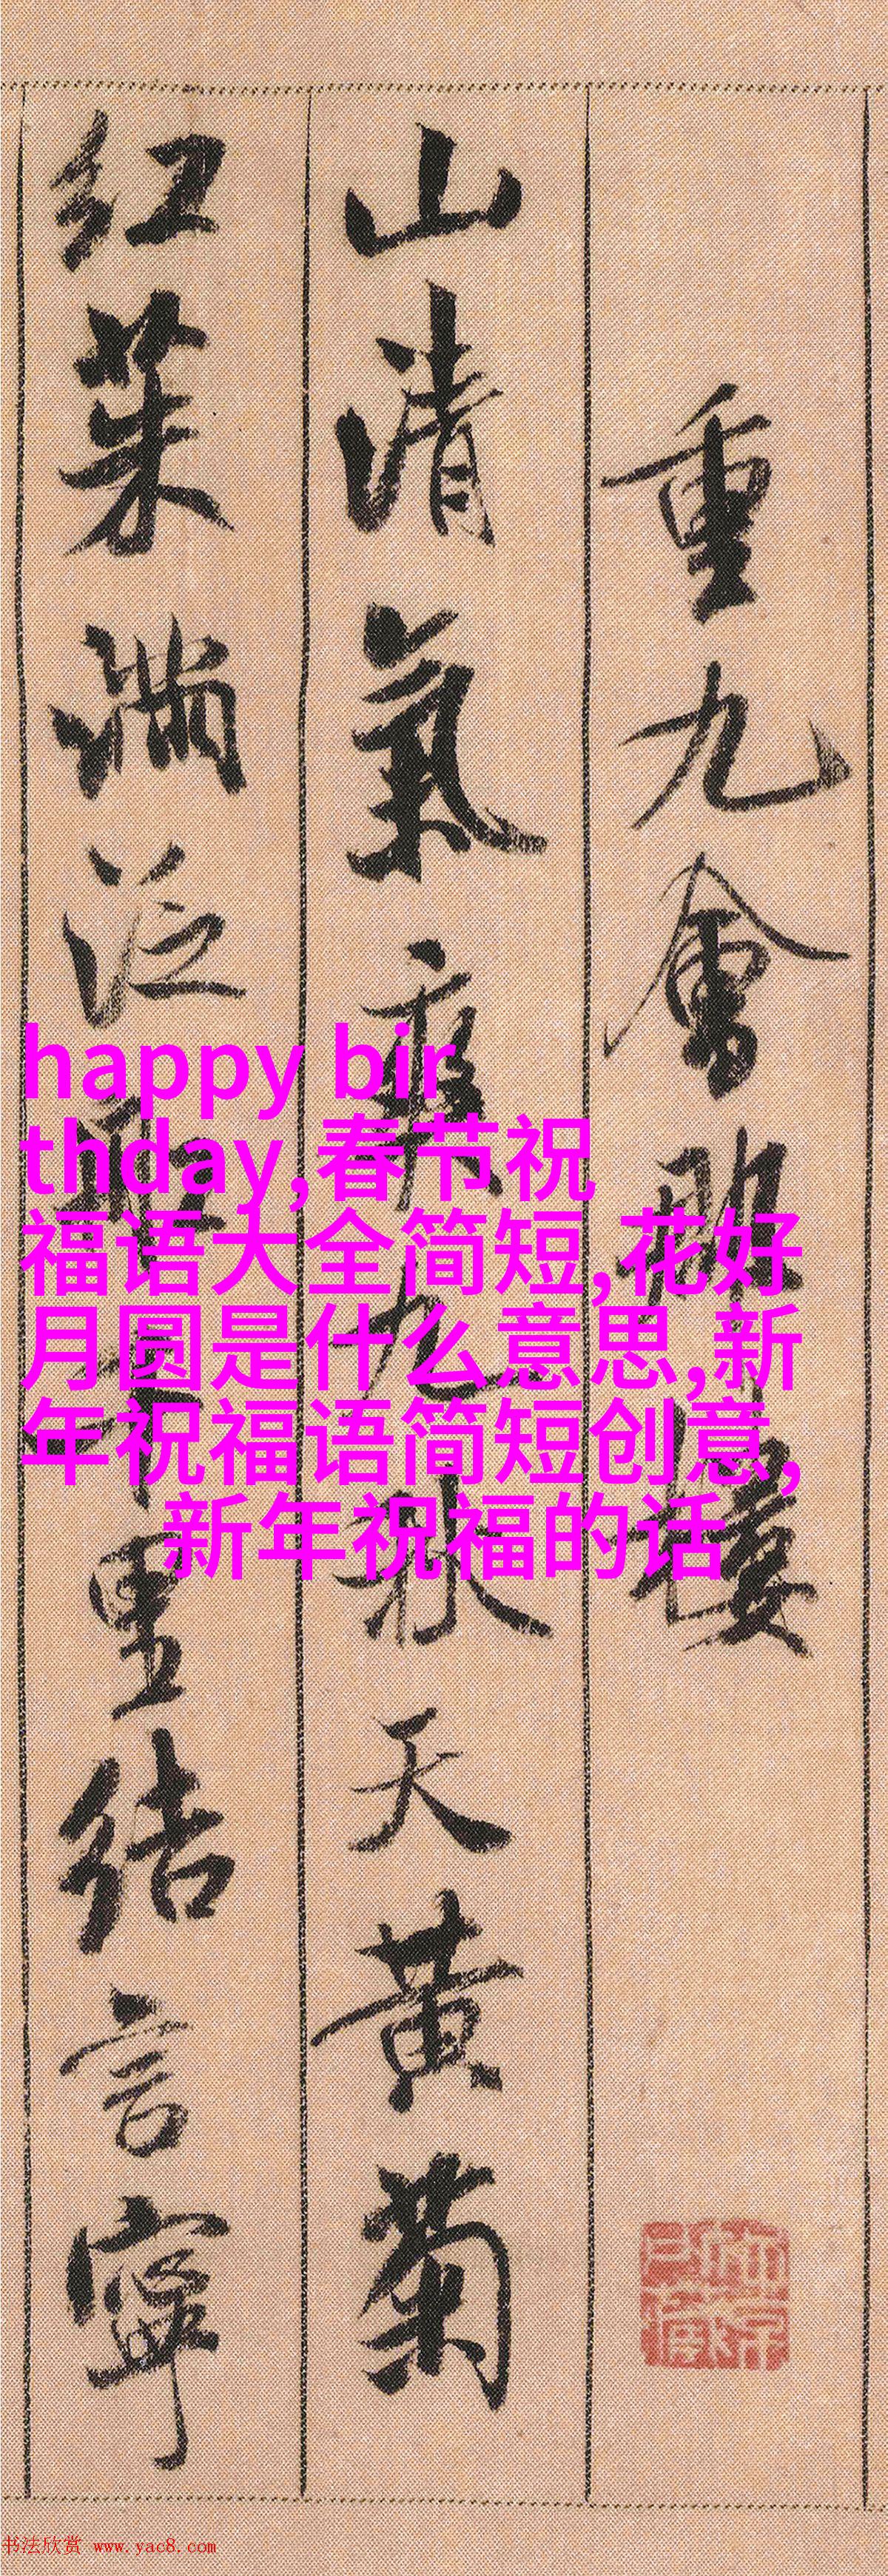 重九會郡樓
山清氣爽九秋天黃菊
紅茱滿泛船千里結言寧
happy bir
thday,春节祝
福语大全简短,花好
月圆是什么意思,新
年祝福语简短创意,
新年祝福的话
书法欣赏 www.yac8.com